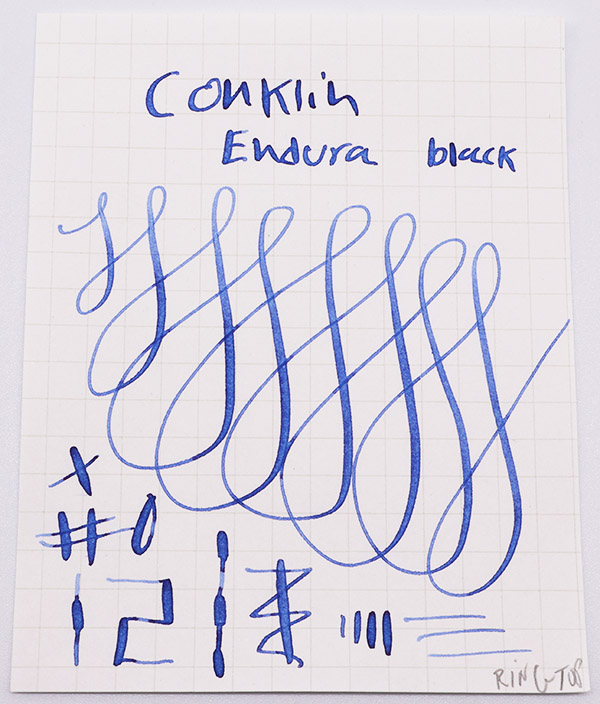 Conklin
Endura black
RING-TOP